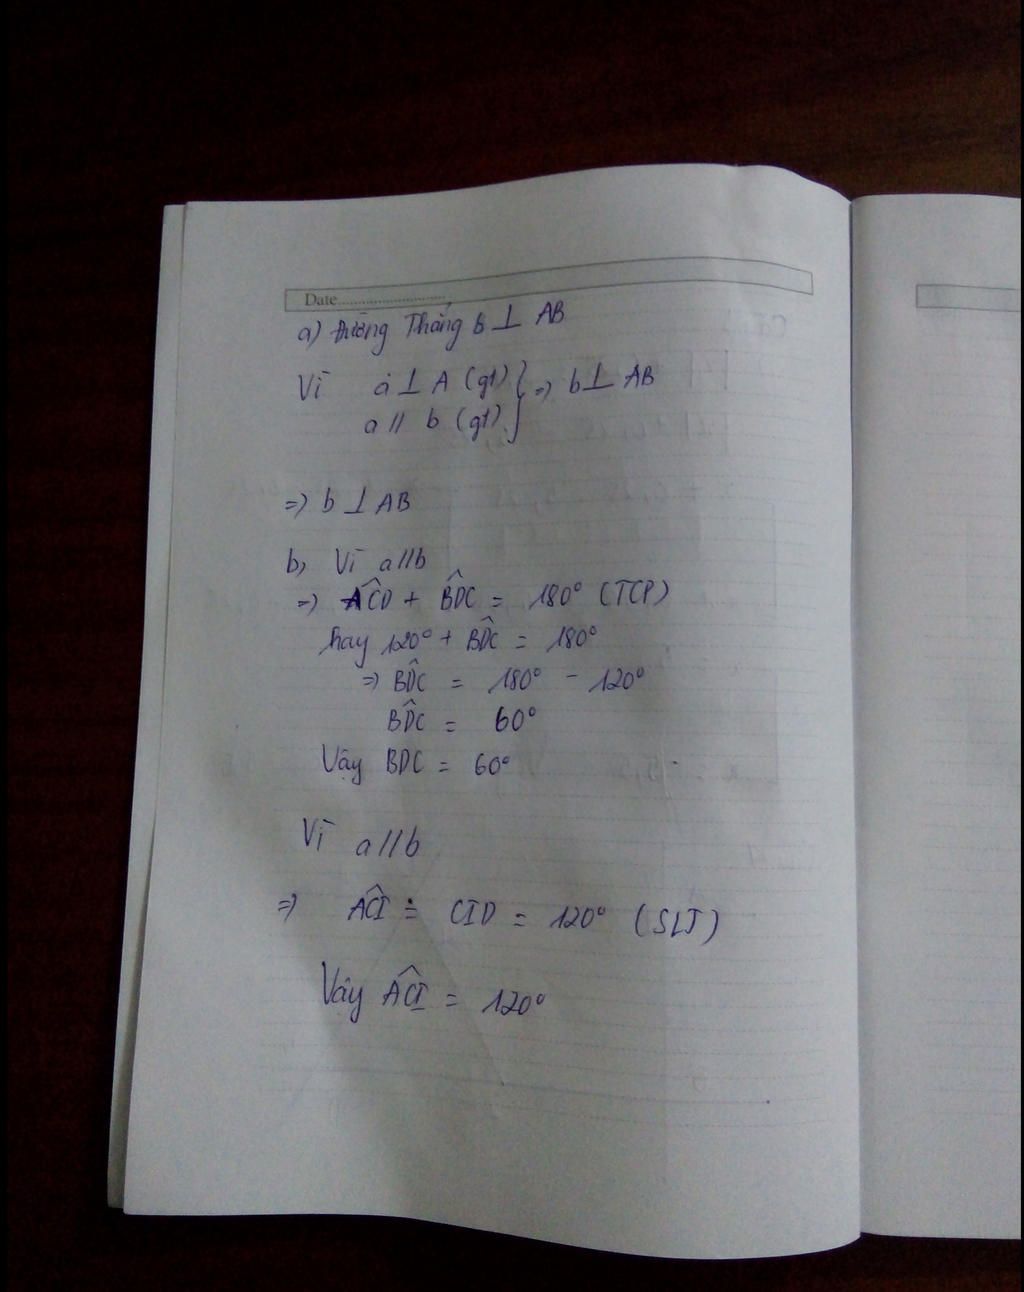 Date
a) Đường Thẳng b ⊥ AB
Vì a ⊥ A (gt) } => b ⊥ AB
a // b (gt)
=> b ⊥ AB
b, Vì a//b
=> ACD + BDC = 180° (TCP)
hay 120° + BDC = 180°
=> BDC = 180° - 120°
BDC = 60°
Vậy BDC = 60°
Vì a//b
=> ACI = CID = 120° (SLT)
Vậy ACI = 120°